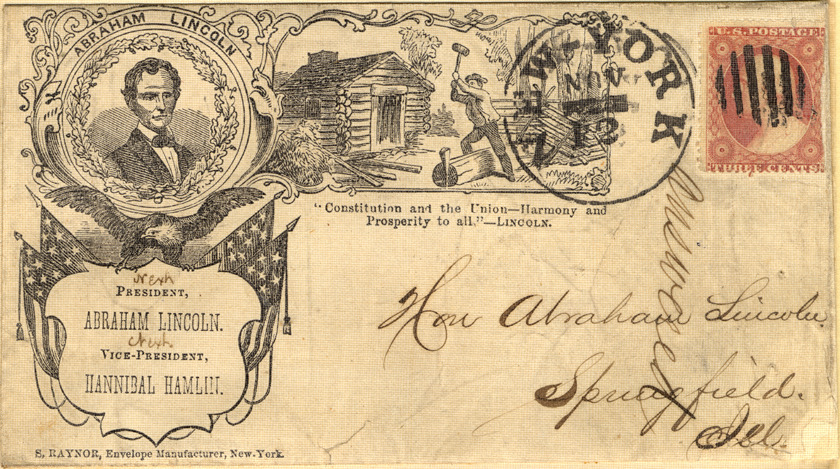 ABRAHAM LINCOLN
NEW-YORK
NOV
12
U.S. POSTAGE
THREE CENTS
"Constitution and the Union—Harmony and
Prosperity to all."—LINCOLN.
Next
PRESIDENT,
ABRAHAM LINCOLN.
Next
VICE-PRESIDENT,
HANNIBAL HAMLIN.
Hon Abraham Lincoln.
Springfield.
Ill.
answered
S. RAYNOR, Envelope Manufacturer, New-York.